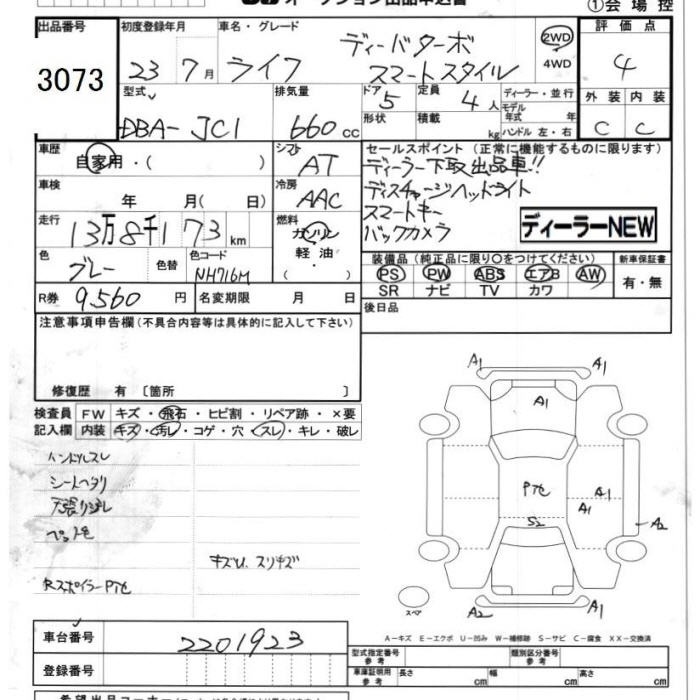 オークション出品申込書
①会場控
出品番号
3073
初度登録年月
23 7月
車名・グレード
ライフ
ディーバターボ
スマートスタイル
2WD
4WD
評価点
4
型式
DBA-JC1
排気量
660cc
ドア 5
形状
定員 4人
積載 kg
ディーラー・並行
モデル
年式 年
ハンドル 左・右
外装 内装
C C
車歴
自家用・( )
シフト
AT
セールスポイント(正常に機能するものに限ります)
ディーラー下取出品車!!
ディスチャージヘッドライト
スマートキー
バックカメラ
ディーラーNEW
車検
年 月( 日)
冷房
AAC
走行
13万8千173km
燃料
ガソリン
軽油・
( )
色
グレー
色替
色コード
NH716M
装備品(純正品に限り〇をつけてください)
PS PW ABS エアB AW
SR ナビ TV カワ
新車保証書
有・無
R券 9,560円
名変期限 月 日
後日品
注意事項申告欄(不具合内容等は具体的に記入して下さい)
修復歴 有〔箇所 〕
検査員
記入欄
FW キズ・飛石・ヒビ割・リペア跡・×要
内装 キズ・汚レ・コゲ・穴・スレ・キレ・破レ
ハンドルスレ
シートヘタリ
天張リヨゴレ
ペット毛
キズU.スリキズ
RスポイラーPワレ
A1 A1
A1
Pワレ
A1
A1
A2
S2
A2 A1
スペア
A-キズ E-エクボ U-凹み W-補修跡 S-サビ C-腐食 XX-交換済
車台番号
2201923
登録番号
型式指定番号
参考
類別区分番号
参考
車庫証明用
参考
長さ cm 幅 cm 高さ cm
希望出品コーナー